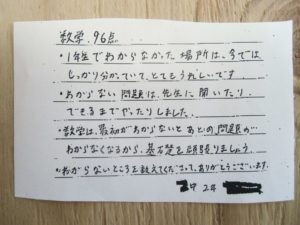 数学 96点
・1年生でわからなかった場所は、今では
しっかり分かっていて、とてもうれしいです。
・わからない問題は、先生に聞いたり、
できるまでやったりしました。
・数学は、最初がわからないとあとの問題の…
わからなくなるから、基礎を頑張りましょう。
・わからないところを教えてくださって、ありがとうございます。
2年